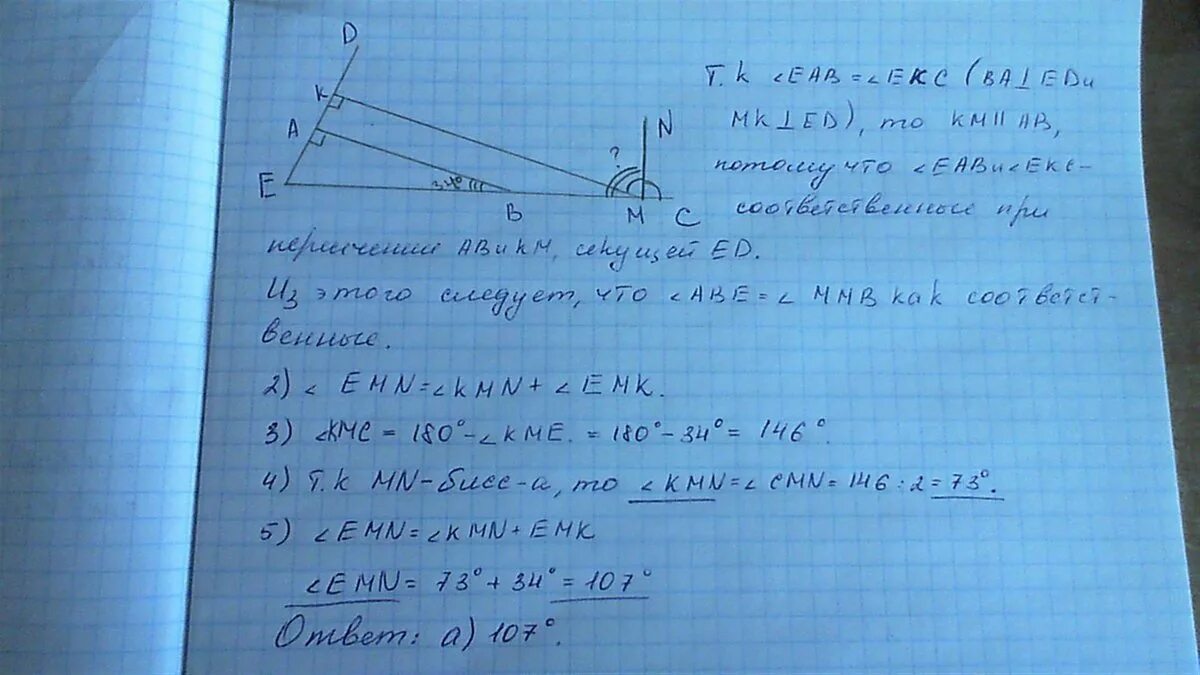 D
K
A
E
34°
B
?
N
M
C
Т.к ∠EAB=∠EKC (BA⊥EDи
MK⊥ED), то KM∥AB,
потому что ∠EABи∠EKC-
соответственные при
пересечении ABиKM, секущей ED.
Из этого следует, что ∠ABE=∠MMB как соответст-
венные.
2) ∠EMN=∠KMN+∠EMK.
3) ∠KMC = 180°-∠KME. = 180°-34° = 146°.
4) Т.к MN-бисс-а, то ∠KMN=∠CMN=146:2=73°.
5) ∠EMN=∠KMN+EMK
∠EMN= 73°+34°=107°
Ответ: а) 107°.